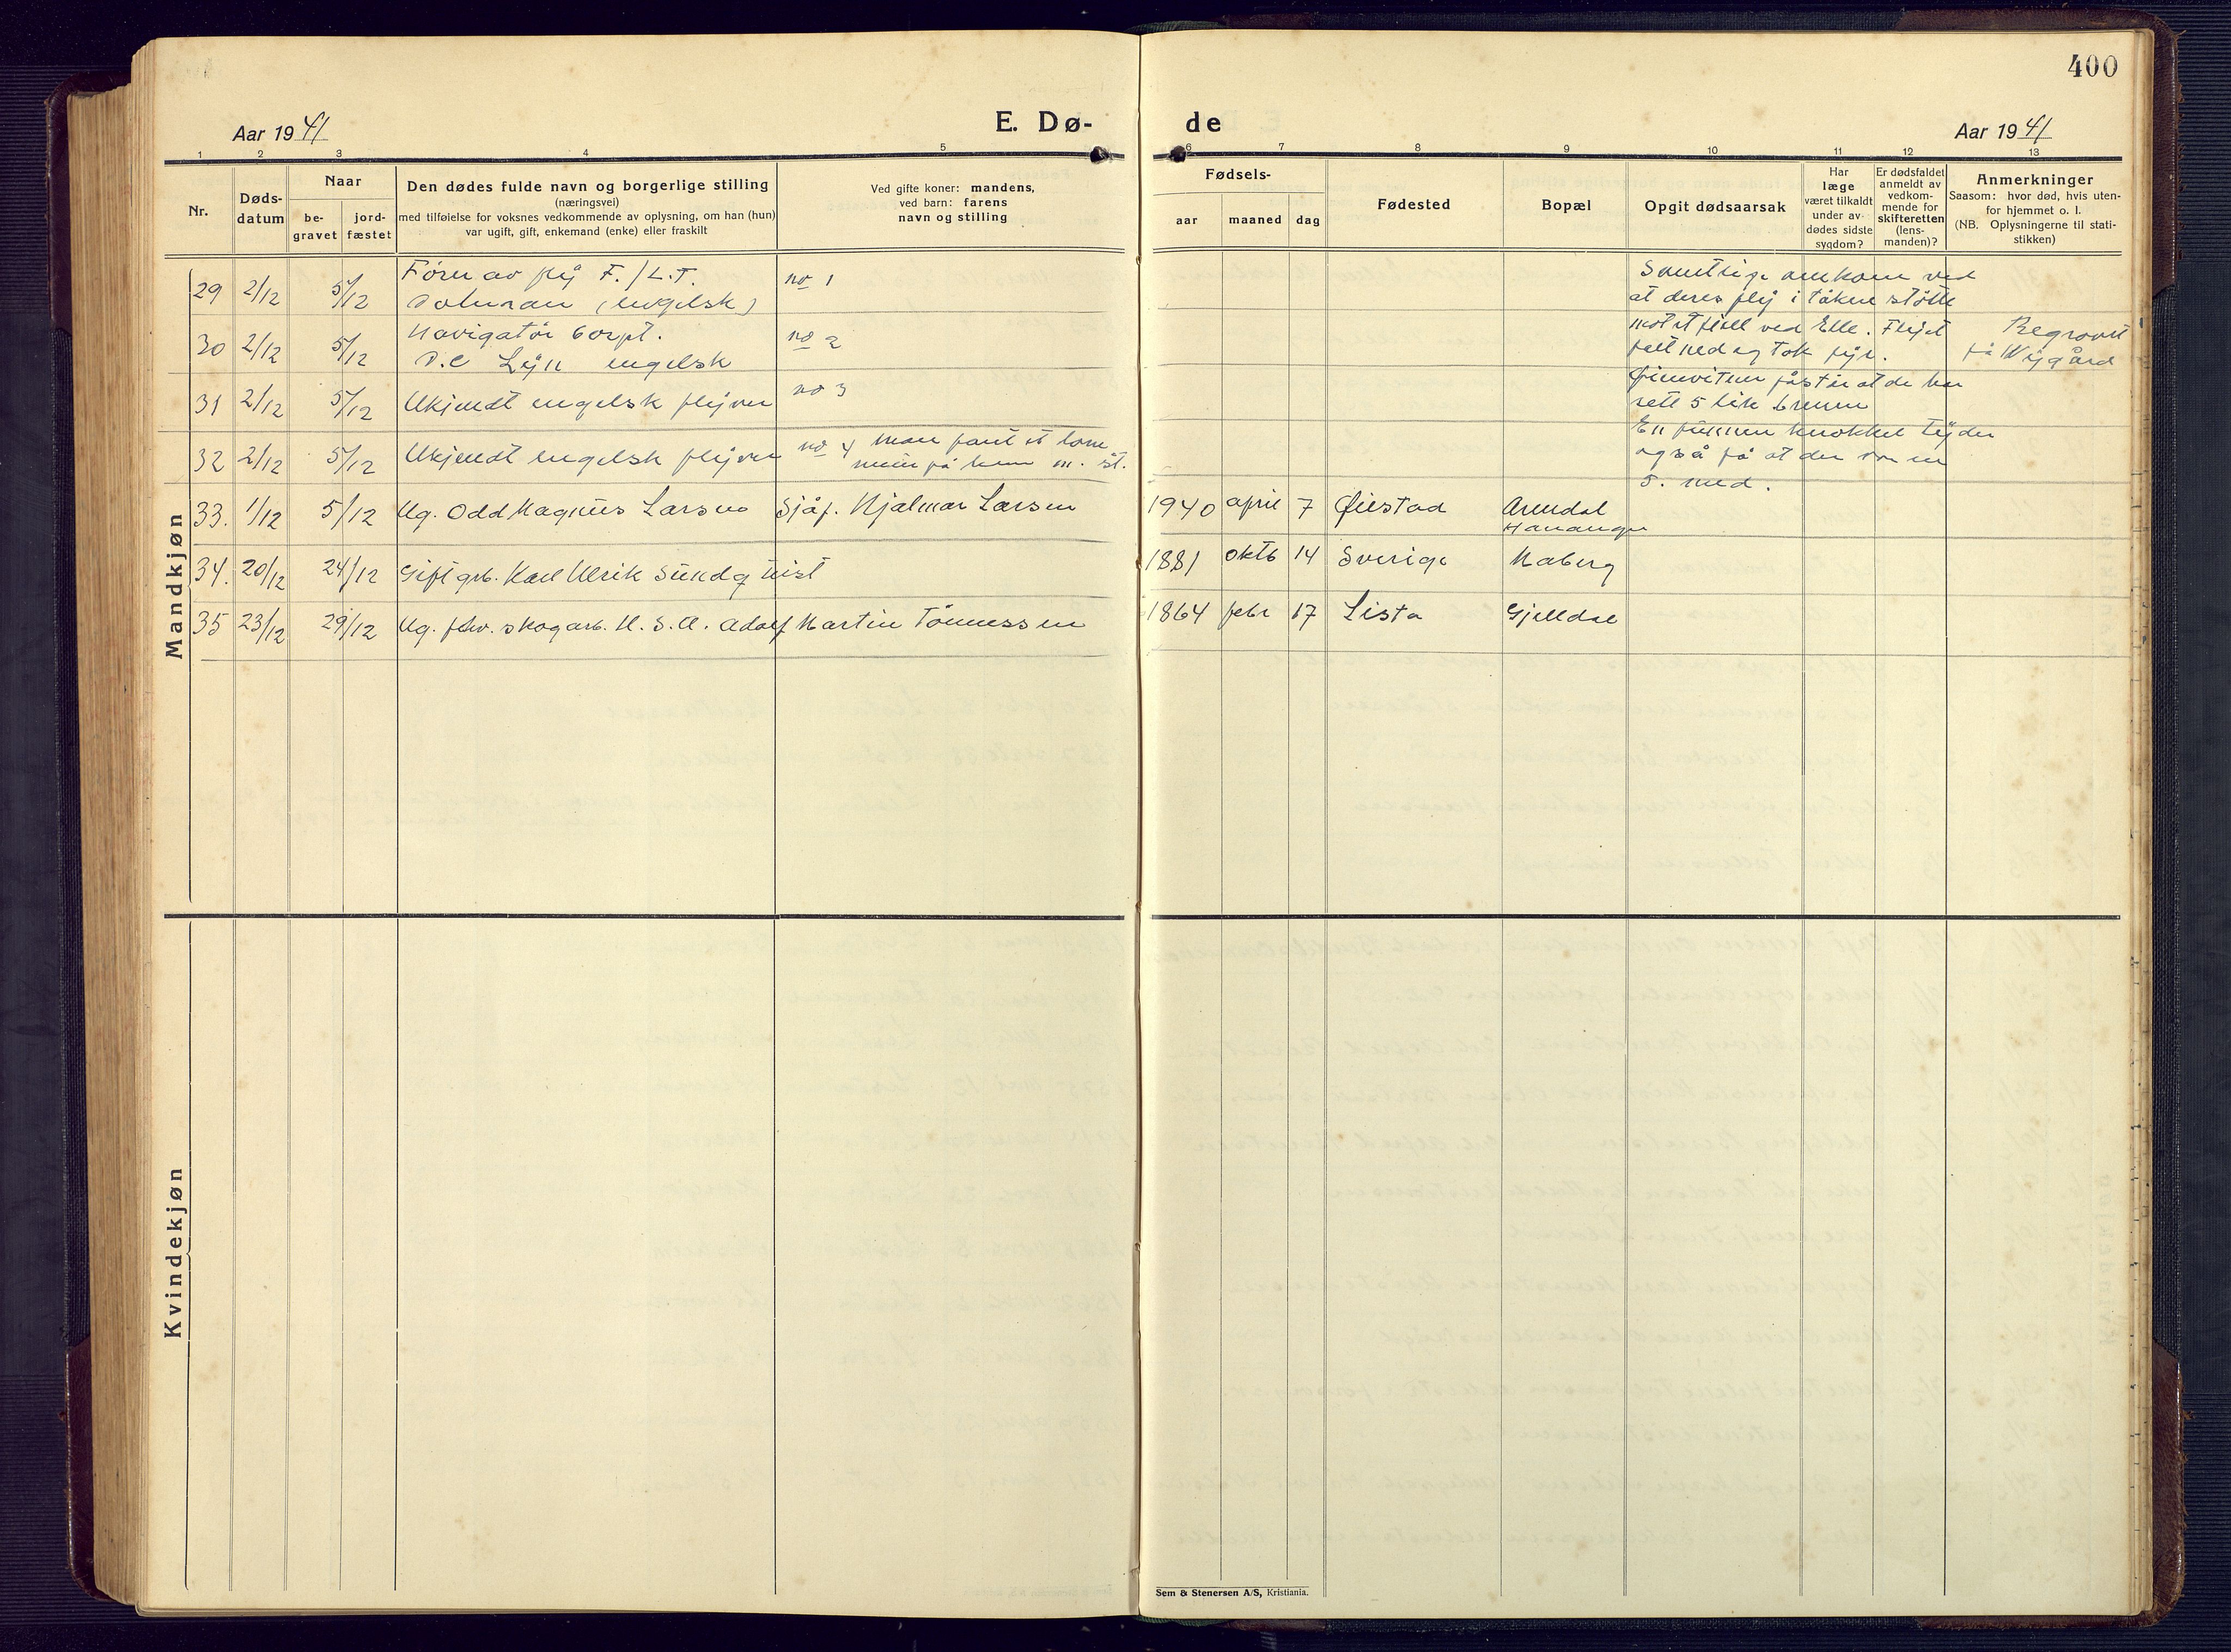 400
Aar 1941
E. Dø-
de
Aar 1941
1 2 3 4 5 6 7 8 9 10 11 12 13
Nr.
Døds-
datum
Naar
be-
gravet
jord-
fæstet
Den dødes fulde navn og borgerlige stilling
(næringsvei)
med tilføielse for voksnes vedkommende av oplysning, om han (hun)
var ugift, gift, enkemand (enke) eller fraskilt
Ved gifte koner: mandens,
ved barn: farens
navn og stilling
Fødsels-
aar
maaned
dag
Fødested
Bopæl
Opgit dødsaarsak
Har
læge
været tilkaldt
under av-
dødes sidste
sygdom?
Er dødsfaldet
anmeldt av
vedkom-
mende for
skifteretten
(lens-
manden)?
Anmerkninger
Saasom: hvor død, hvis uten-
for hjemmet o. l.
(NB. Oplysningerne til stati-
stikken)
Mandkjøn
29 2/12 5/12 Fører av flÿ F./L.T. no 1
(engelsk)
30 2/12 5/12 Navigatør Corpt. no 2
D.C Lÿn engelsk
31 2/12 5/12 Ukjendt engelsk flÿver no 3
32 2/12 5/12 Ukjendt engelsk flÿver no 4 man fant et
på ham m. st.
Samtlige omkom ved
at deres flÿ i tåken støtte
mot et fjell ved Elle. Flÿet
falt ned og tok fÿr.
Øienvitner påstår at de har
sett 5 lik brenne
En funnen knokkel tÿder
også på at der var en
5. med.
Begravet
på Nÿgård
33. 1/12 5/12 Ug. Odd Magnus Larsen Sjåf. Hjalmar Larsen 1940 april 7 Øiestad Arendal
Hananger
34. 20/12 24/12 Gift grb. Karl Ulrik Sundqvist 1881 oktb 14 Sverige Maberg
35 23/12 29/12 Ug. fhv. skogarb. U. S. A. Adolf Martin Tönnessen 1864 febr 17 Lista Gjelldal
Kvindekjøn
Sem & Stenersen A/S, Kristiania.